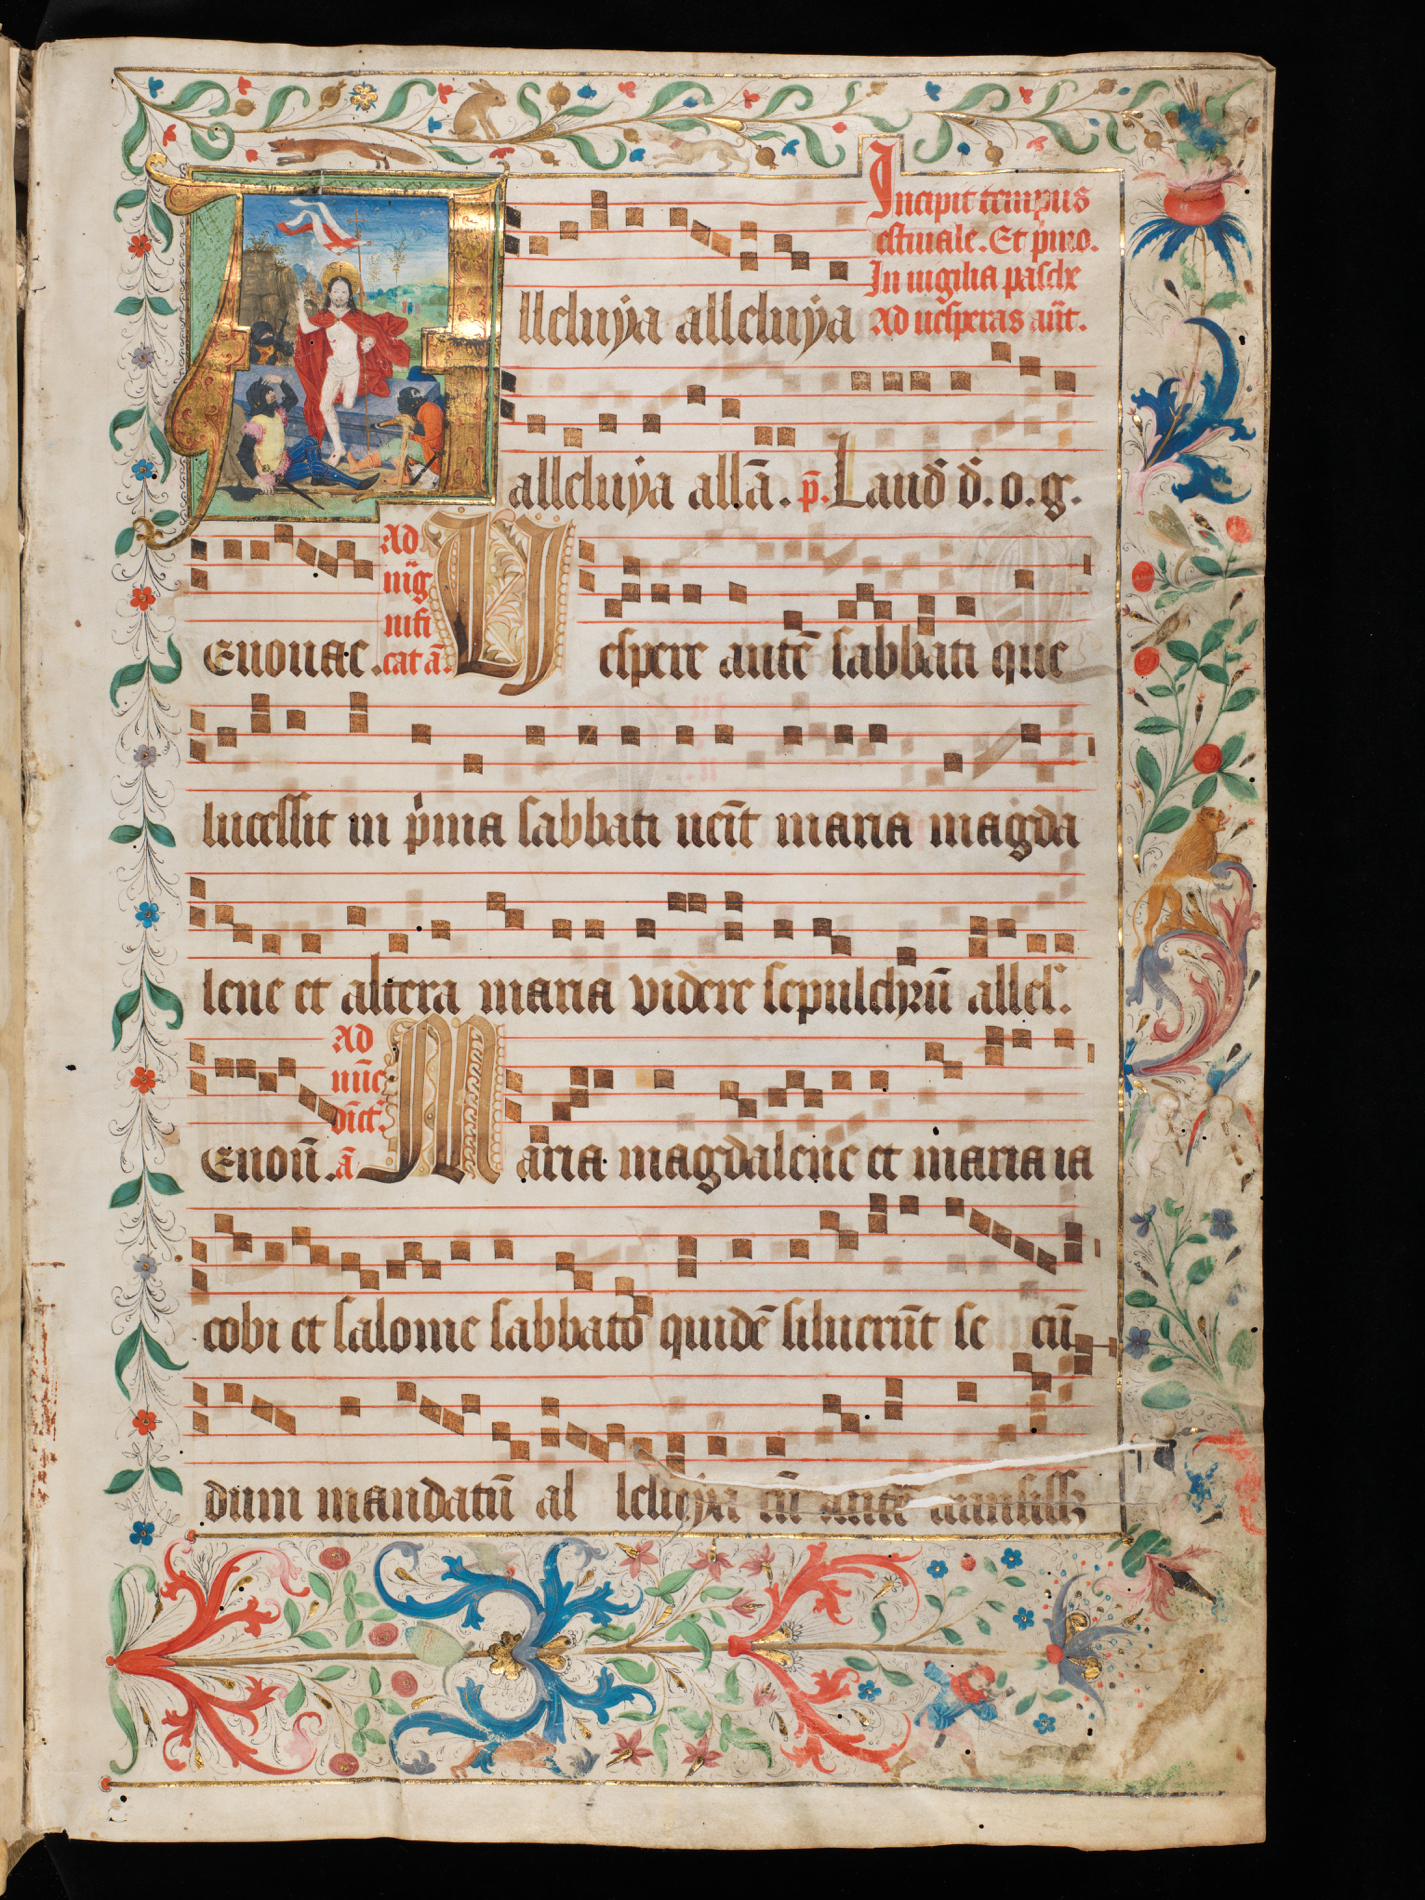 Incipit tempus
estiuale. Et pͥmo.
In uigilia pasche
Ad uesperas an̄t.
Alleluya alleluya
alleluya all̄a. p̄. Laud d̄. o. g.
Euouae. Ad mag nifi cat a̅. Uespere aute̅ sabbati que
lucessit in pͥma sabbati uen̄it maria magda
lene et altera maria videre sepulchru̅ allel'.
Euou̅. Ad nu̅c dimit̄. a̅ Maria magdalene et maria ia
cobi et salome sabbato quide̅ siluerūt se cu̅
dum mandatu̅ al leluya cu̅ aute̅ transiss